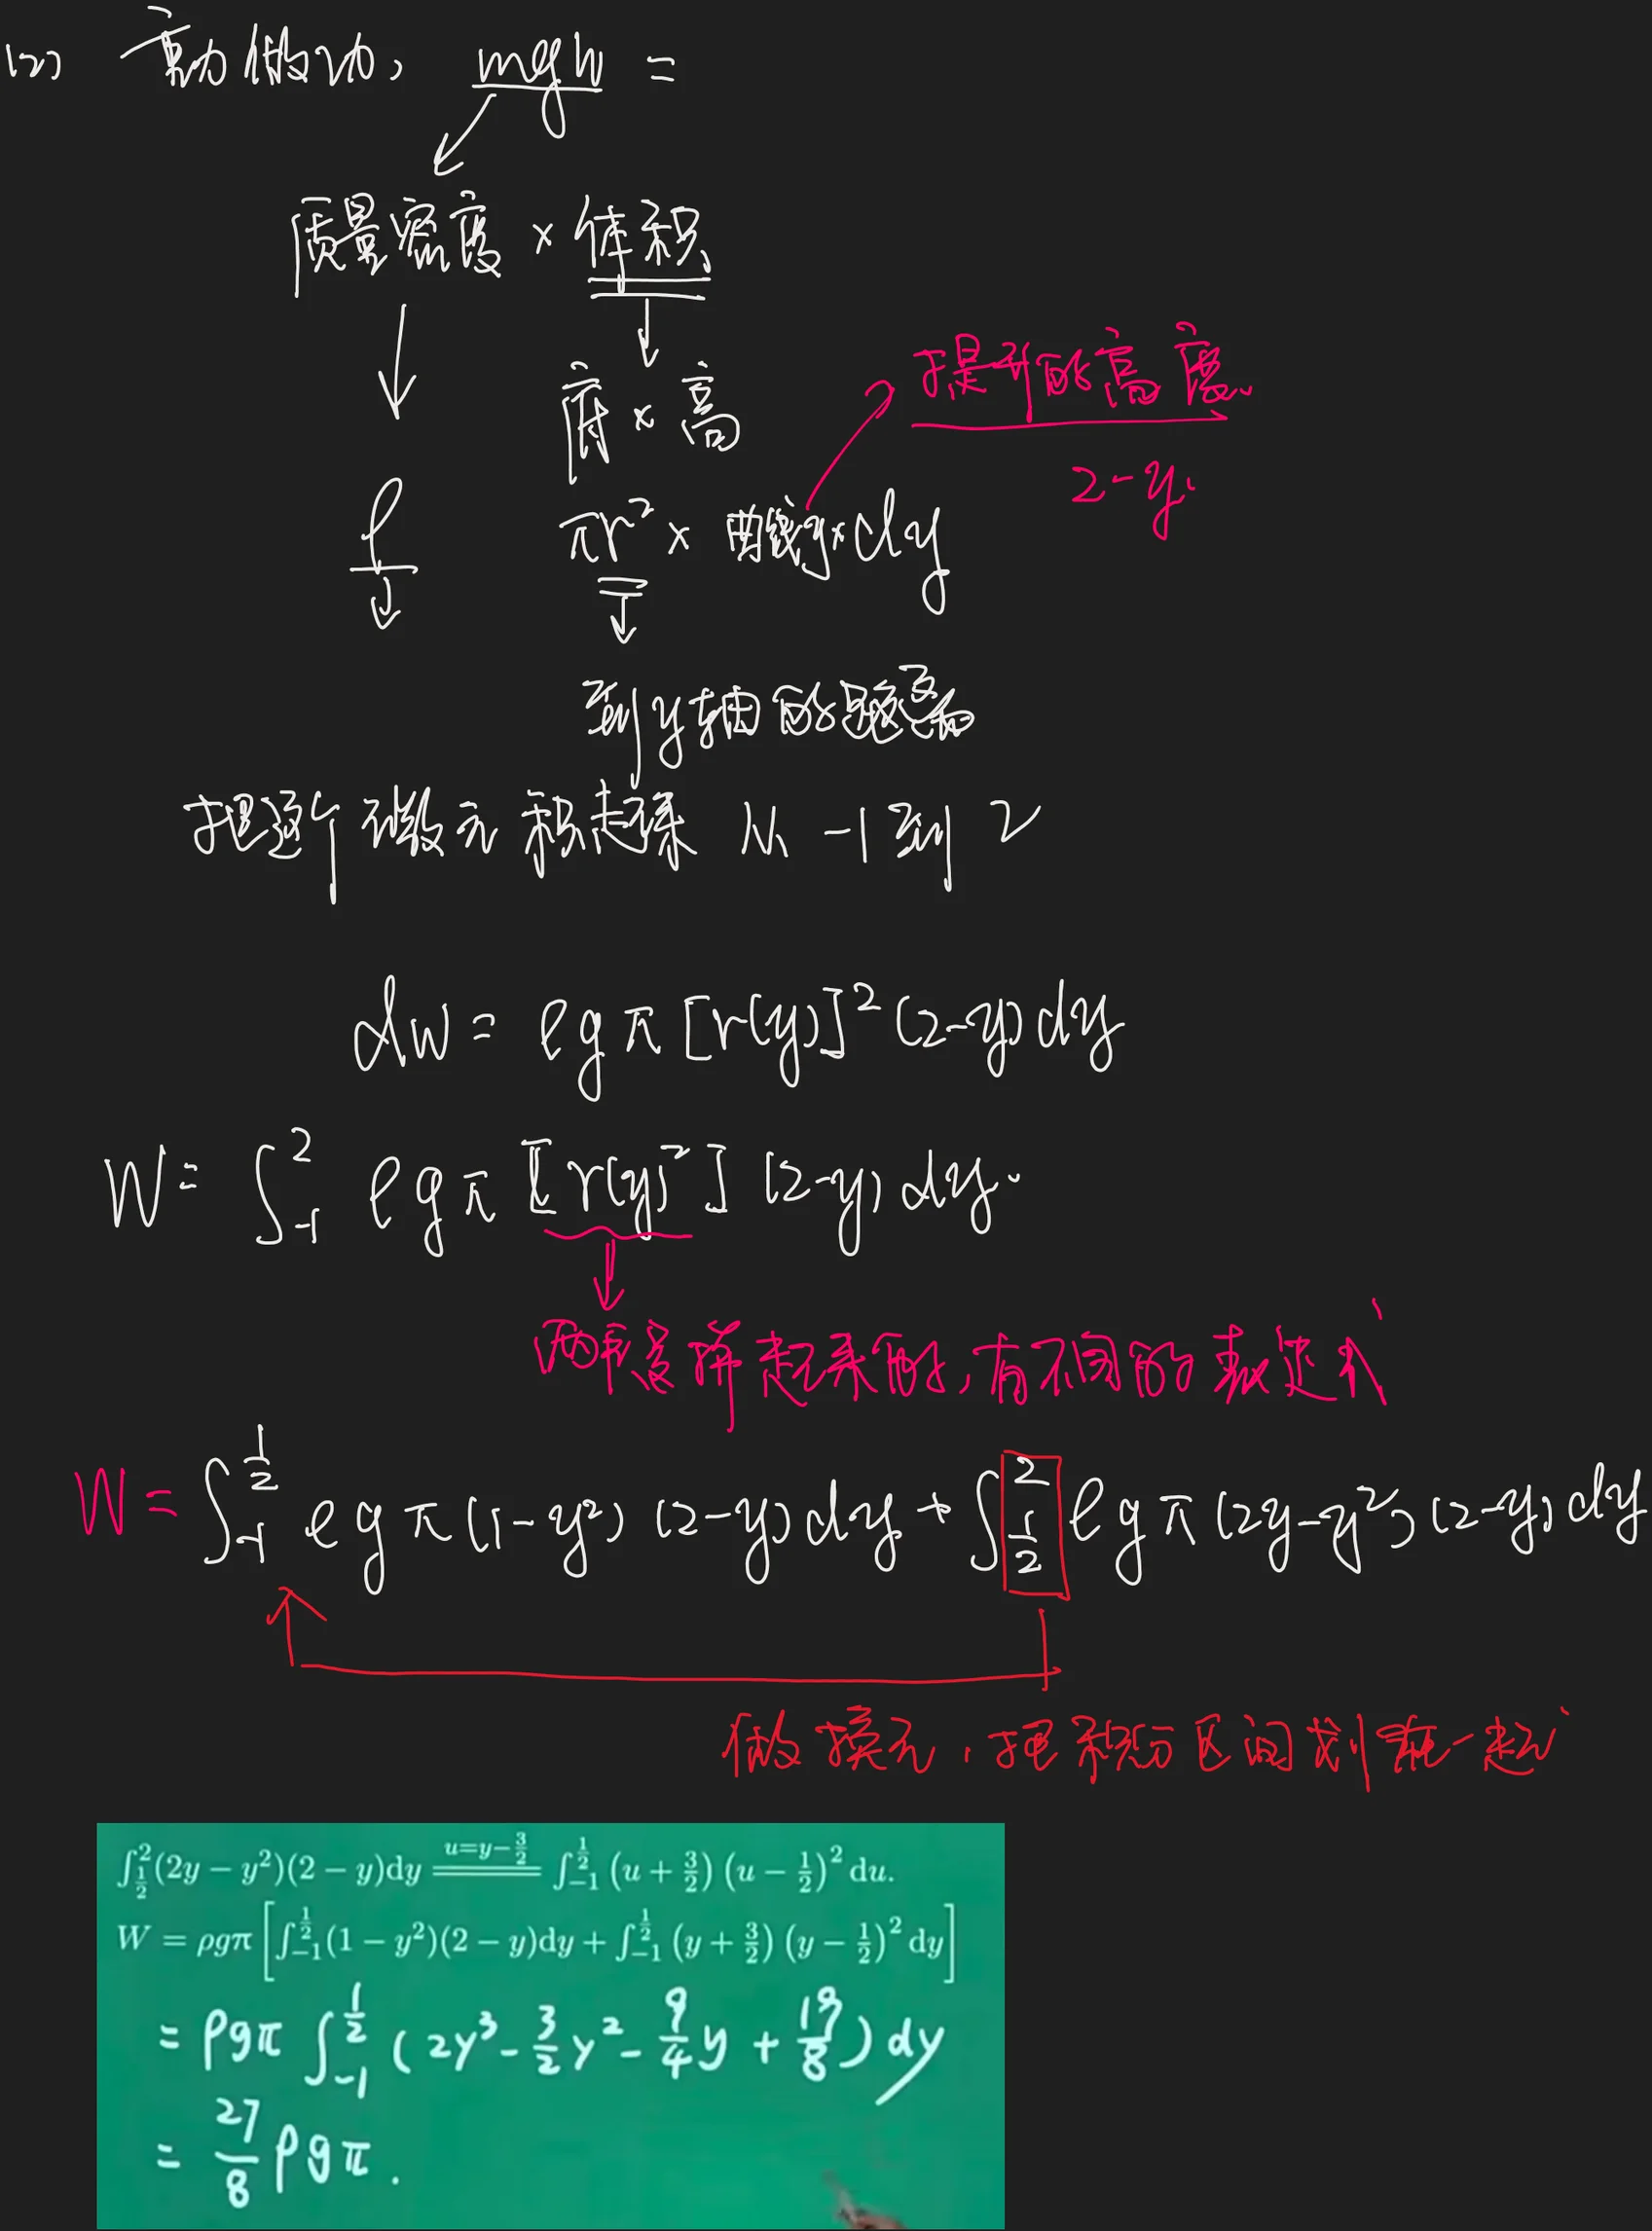 (2) 重力做功, mgh =
质量密度 × 体积
底 × 高
提升的高度
2-y
ρ πr² × 曲线y × dy
到y轴的距离
把这个微元积起来 从 -1 到 2
dW = ρgπ[r(y)]²(2-y)dy
W = ∫₋₁² ρgπ[r(y)²](2-y)dy.
两段拼起来的,有不同的表达式
W = ∫₋₁^{1/2} ρgπ(1-y²)(2-y)dy + ∫_{1/2}^{2} ρgπ(2y-y²)(2-y)dy
做换元,把积分区间划在一起
∫_{1/2}^{2}(2y-y²)(2-y)dy ==(u=y-3/2)== ∫₋₁^{1/2}(u+3/2)(u-1/2)²du.
W = ρgπ[∫₋₁^{1/2}(1-y²)(2-y)dy + ∫₋₁^{1/2}(y+3/2)(y-1/2)²dy]
= ρgπ∫₋₁^{1/2}(2y³-3/2y²-9/4y+19/8)dy
= 27/8 ρgπ.